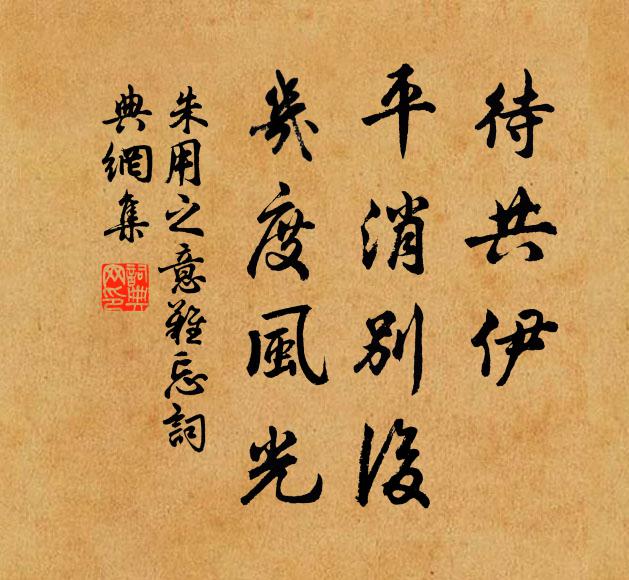 待共伊
平消別後
幾度風光
朱用之意難忘詞
典網集
詞典網印